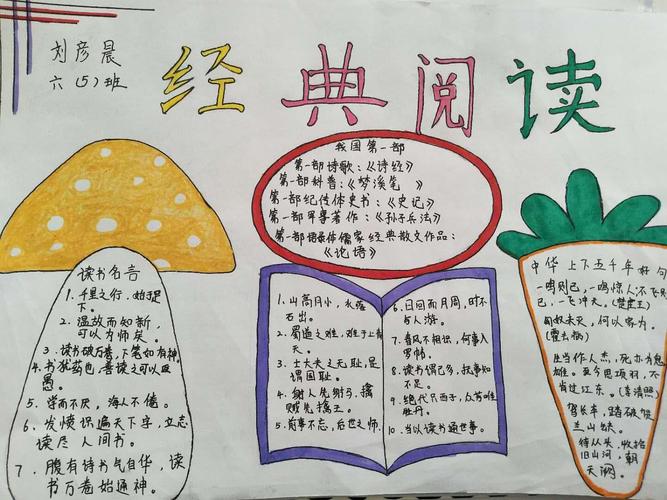 刘彦晨
六（5）班
经典阅读
我国第一部
第一部诗歌：《诗经》
第一部科普：《梦溪笔 》
第一部纪传体史书：《史记》
第一部军事著作：《孙子兵法》
第一部语录体儒家经典散文作品：
《论诗》
读书名言
1、千里之行，始于足
下。
2、温故而知新，
可以为师矣。
3、读书破万卷，下笔如有神。
4、书犹药也，善读之可以医
愚。
5、学而不厌，诲人不倦。
6、发愤识遍天下字，立志
读尽人间书。
7、腹有诗书气自华，读
书万卷始通神。
1、山高月小，水落
石出。
2、蜀道之难，难于上青
天。
3、士大夫之无耻，是
谓国耻。
4、射人先射马，擒
贼先擒王。
5、前事不忘，后世之师。
6、日回而月周，时不
与人游。
7、春风不相识，何事入
罗帏。
8、读书谓己多，抚事知
不足。
9、绝代只西子，众芳唯
牡丹。
10、当以读书通世事。
中华上下五千年好句
一鸣则已，一鸣惊人不飞则
已，一飞冲天。（楚庄王）
匈奴未灭，何以家为。
（霍去病）
生当作人杰，死亦为鬼
雄。至今思项羽，不
肯过江东。（李清照）
驾长车，踏破贺
兰山缺。
待从头，收拾
旧山河，朝
天阙。